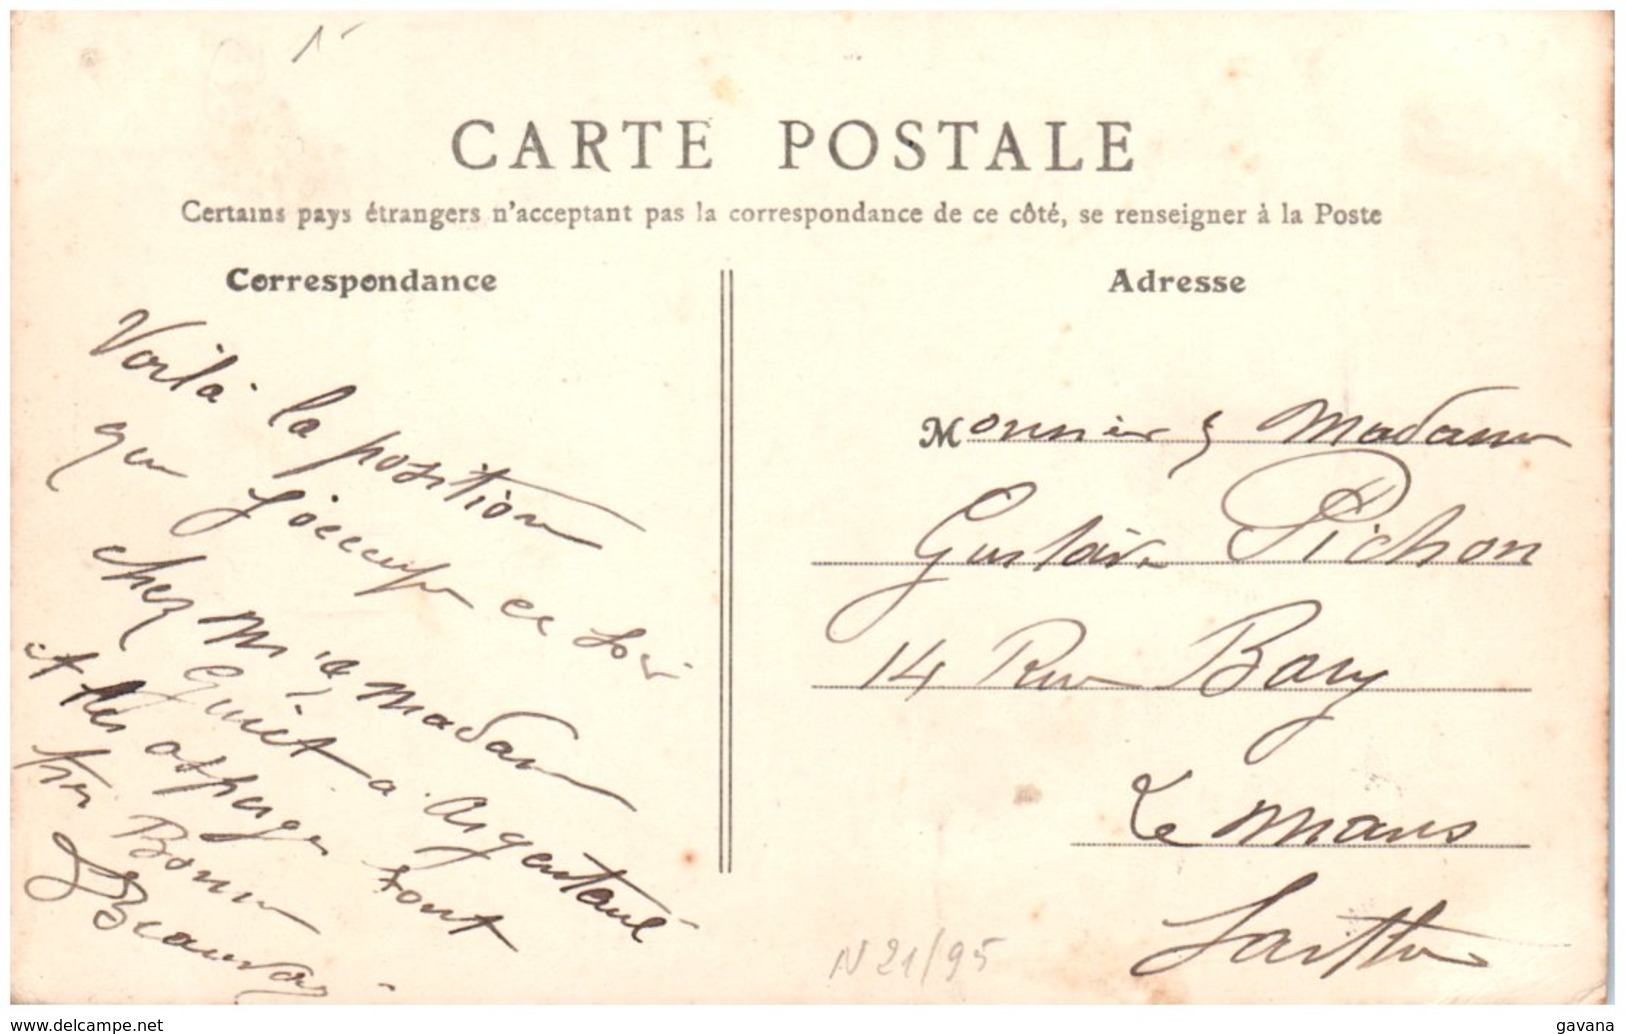 CARTE POSTALE
Certains pays étrangers n'acceptant pas la correspondance de ce côté, se renseigner à la Poste
Correspondance
Voilà la position
que j'occupe ce soir
chez Mr & Madame
Guiet a Argenteuil
et les asperges sont
très Bonne
Beauvais
Adresse
Monsieur & Madame
Gustave Pichon
14 Rue Bary
Le Mans
Sarthe
N 21/95
www.delcampe.net
gavana